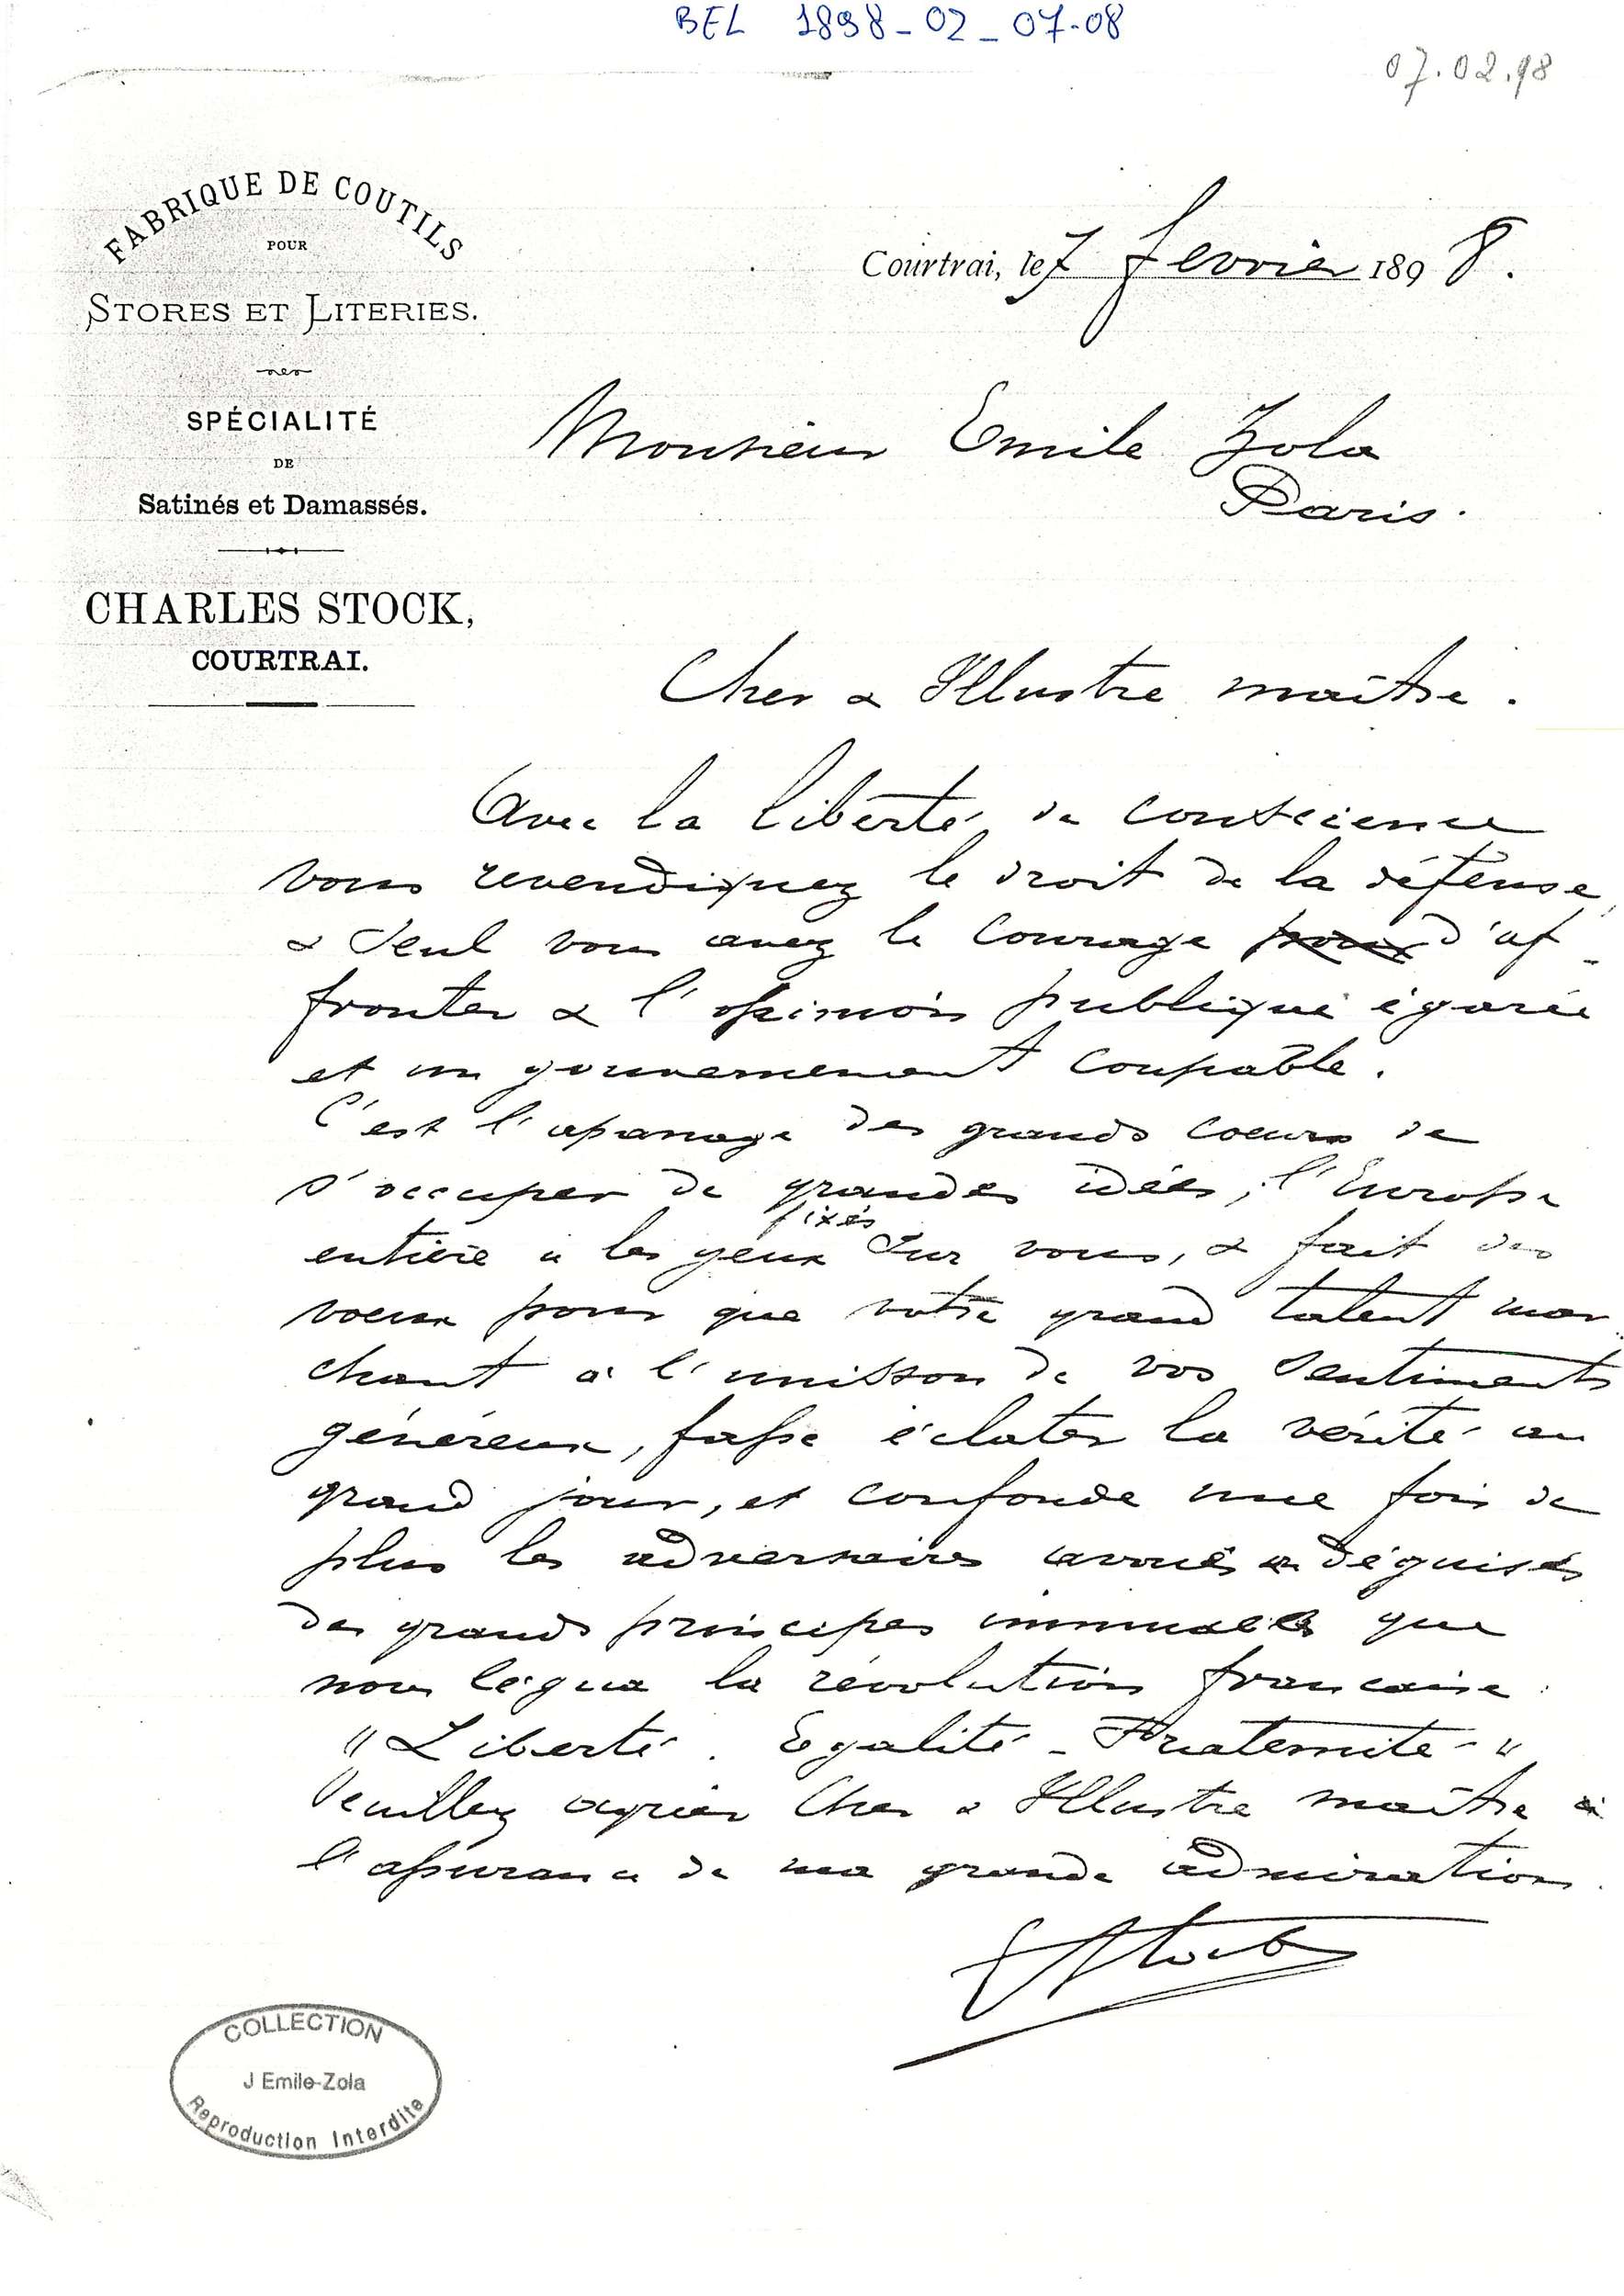 BEL 1898-02-07-08
07.02.98
FABRIQUE DE COUTILS
POUR
STORES ET LITERIES.
SPÉCIALITÉ
DE
Satinés et Damassés.
CHARLES STOCK,
COURTRAI.
Courtrai, le 7 fevrier 1898.
Monsieur Emile Zola
Paris.
Cher & Illustre maître.
Avec la liberté de conscience
vous revendiquez le droit de la défense,
& seul vous avez le courage pour d'af-
fronter & l'opinion publique égarée
et un gouvernement coupable.
C'est l'apanage des grands coeurs de
s'occuper de grandes idées, l'Europe
fixés
entière a les yeux sur vous, & fait des
voeux pour que votre grand talent mar-
chant à l'unisson de vos sentiments
généreux, fasse éclater la vérité au
grand jour, et confonde une fois de
plus les adversaires avoués & déguisés
des grands principes immuables que
nous légua la révolution francaise:
"Liberté. Egalité - Fraternité-"
Veuillez agréer Cher & Illustre maître
l'assurance de ma grande admiration.
Stock
COLLECTION
J Emile-Zola
Reproduction Interdite